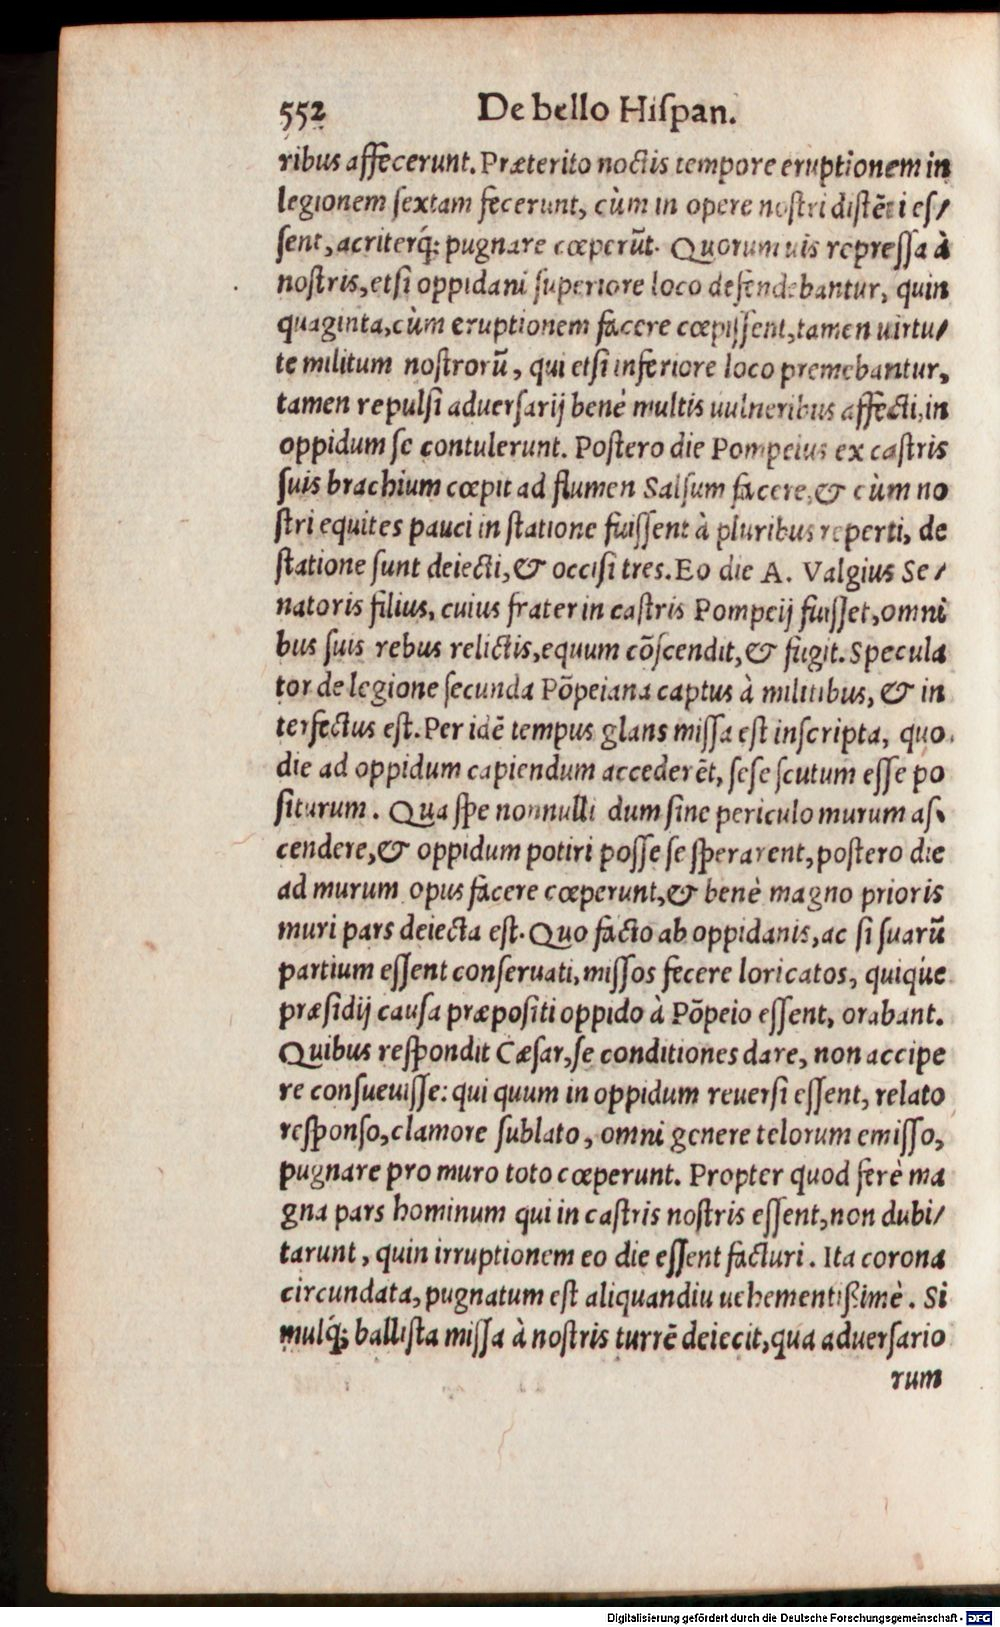 552 De bello Hiſpan.
ribus affecerunt. Præterito noctis tempore eruptionem in
legionem ſextam fecerunt, cùm in opere noſtri diſtēti eſ/
ſent, acriterq́; pugnare cœperūt. Quorum uis repreſſa à
noſtris, etſi oppidani ſuperiore loco defendebantur, quin
quaginta, cùm eruptionem facere cœpiſſent, tamen uirtu/
te militum noſtrorū, qui etſi inferiore loco premebantur,
tamen repulſi aduerſarij benè multis uulneribus affecti, in
oppidum ſe contulerunt. Poſtero die Pompeius ex caſtris
ſuis brachium cœpit ad flumen Salſum facere, & cùm no
ſtri equites pauci in ſtatione fuiſſent à pluribus reperti, de
ſtatione ſunt deiecti, & occiſi tres. Eo die A. Valgius Se/
natoris filius, cuius frater in caſtris Pompeij fuiſſet, omni
bus ſuis rebus relictis, equum cōſcendit, & fugit. Specula
tor de legione ſecunda Pōpeiana captus à militibus, & in
terfectus eſt. Per idē tempus glans miſſa eſt inſcripta, quo
die ad oppidum capiendum accederēt, ſeſe ſcutum eſſe po
ſiturum. Qua ſpe nonnulli dum ſine periculo murum aſ
cendere, & oppidum potiri poſſe ſe ſperarent, poſtero die
ad murum opus facere cœperunt, & benè magno prioris
muri pars deiecta eſt. Quo facto ab oppidanis, ac ſi ſuarū
partium eſſent conſeruati, miſſos fecere loricatos, quique
præſidij cauſa præpoſiti oppido à Pōpeio eſſent, orabant.
Quibus reſpondit Cæſar, ſe conditiones dare, non accipe
re conſueuiſſe: qui quum in oppidum reuerſi eſſent, relato
reſponſo, clamore ſublato, omni genere telorum emiſſo,
pugnare pro muro toto cœperunt. Propter quod ferè ma
gna pars hominum qui in caſtris noſtris eſſent, non dubi/
tarunt, quin irruptionem eo die eſſent facturi. Ita corona
circundata, pugnatum eſt aliquandiu uehementißimè. Si
mulq́; balliſta miſſa à noſtris turrē deiecit, qua aduerſario
rum
Digitalisierung gefördert durch die Deutsche Forschungsgemeinschaft - DFG